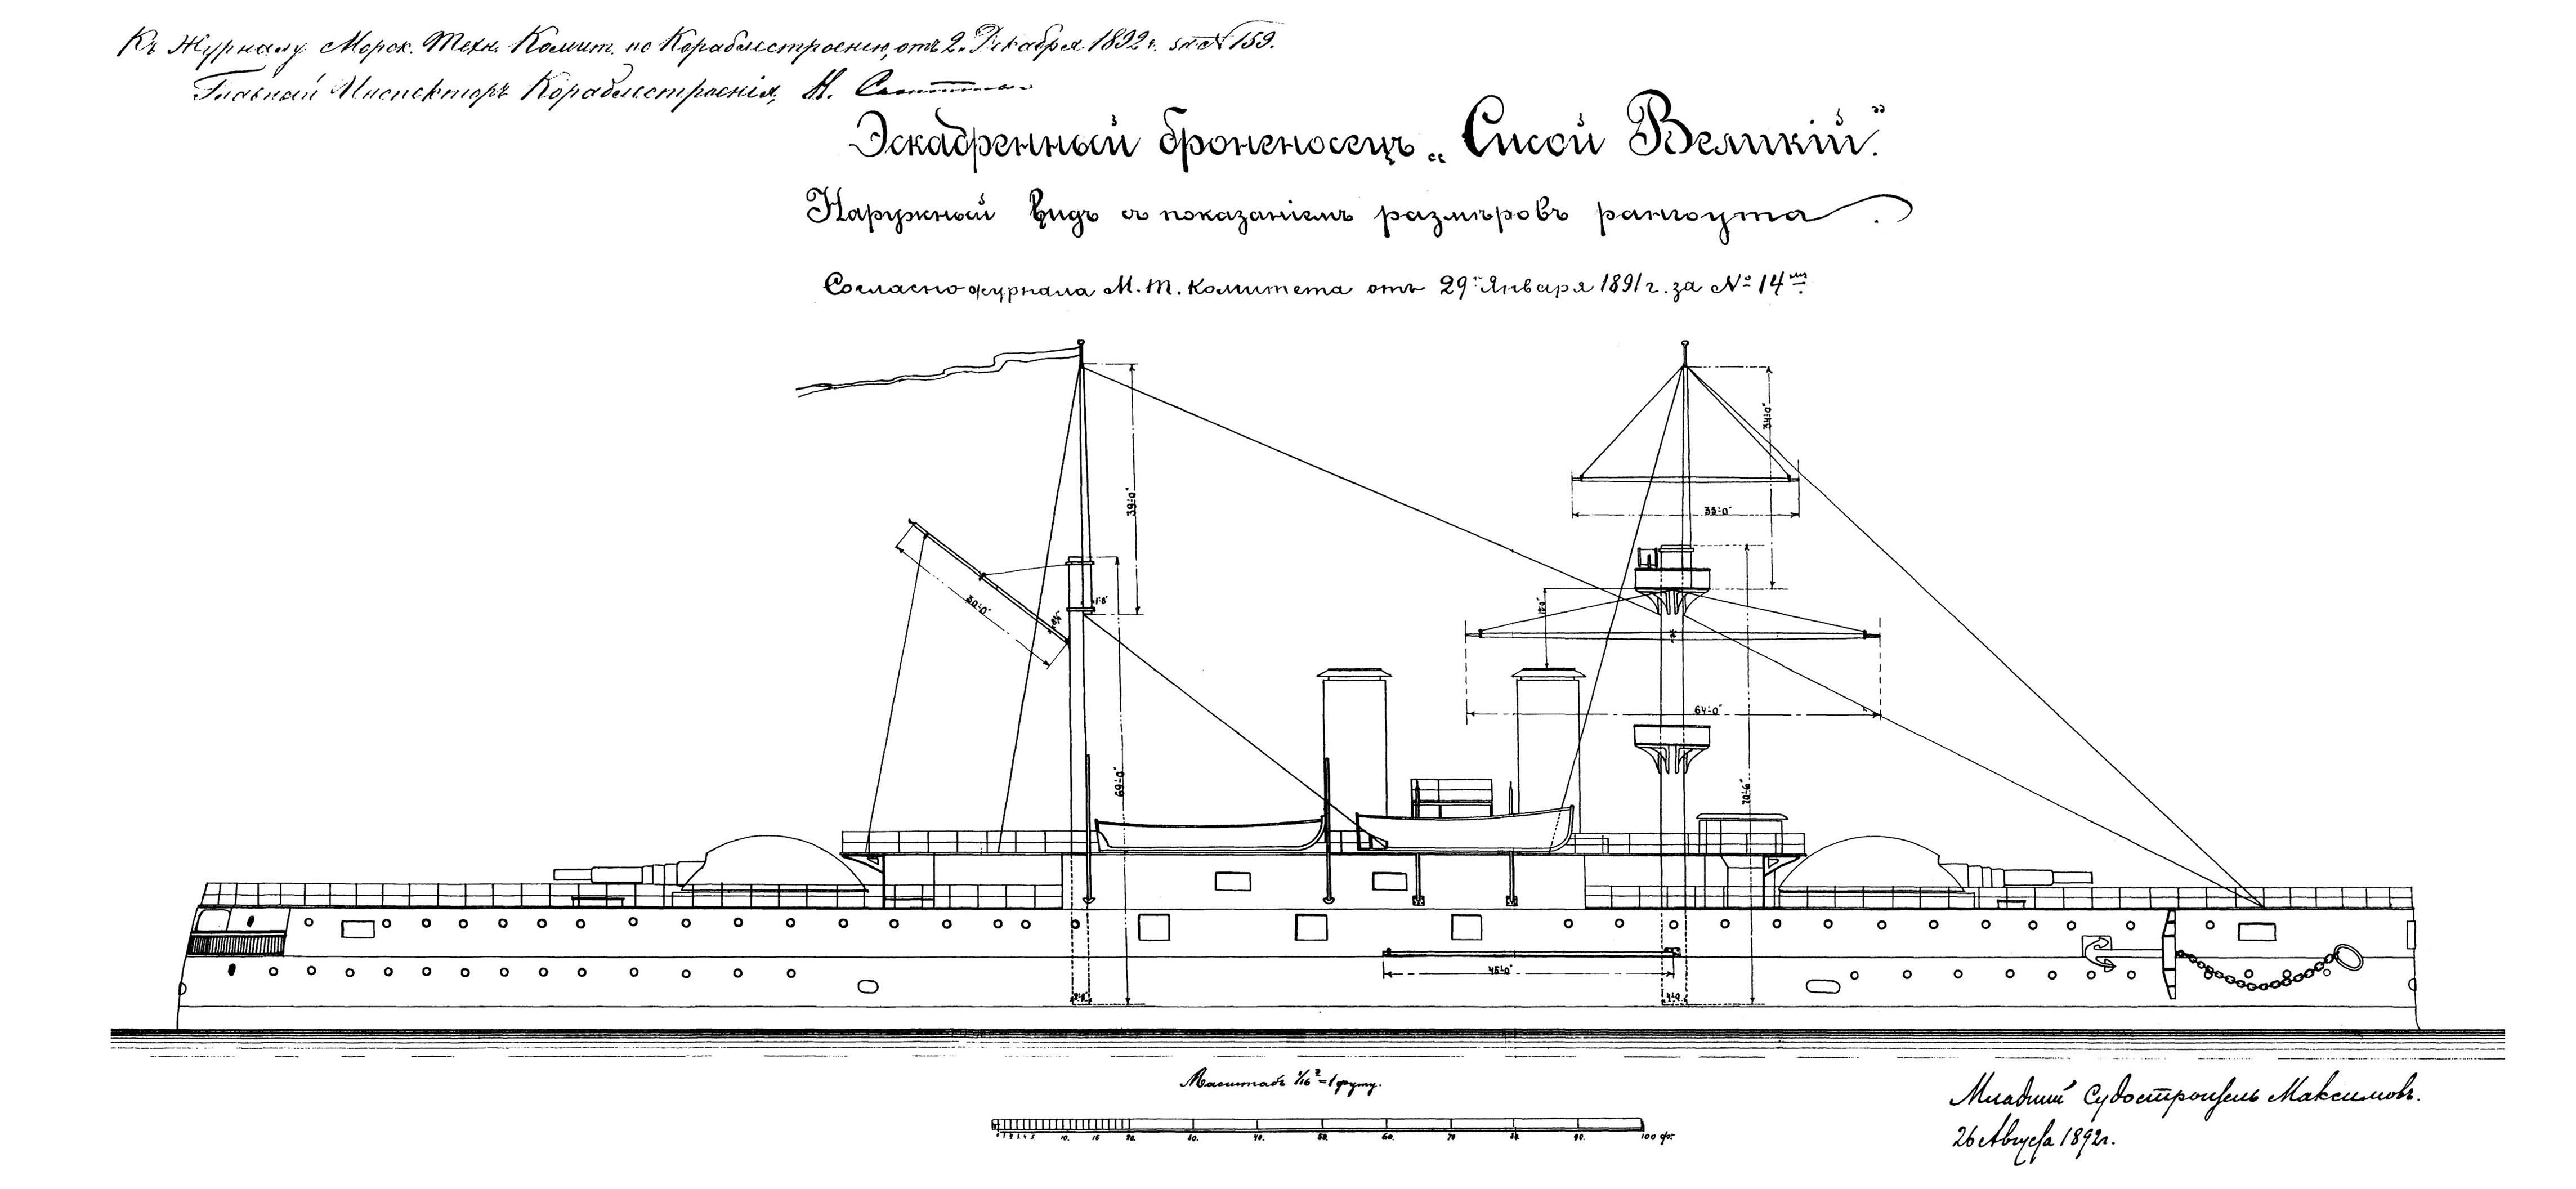 Къ Журналу Морск. Техн. Комит. по Кораблестроенію, отъ 2. Декабря 1892 г. за № 159.
Главный Инспекторъ Кораблестроенія, Н.
Эскадренный броненосецъ „Сисой Великій.”
Наружный видъ съ показаніемъ размѣровъ рангоута.
Согласно журнала М. Т. Комитета отъ 29го Января 1891 г. за № 14мъ
34'-0"
39'-0"
35'-0"
30'-0"
1'-8"
64'-0"
69'-0"
70'-6"
45'-0"
4'-0
Масштабъ 1/16" = 1 футу.
1 2 3 4 5 10. 15 20. 30. 40. 50. 60. 70 80. 90. 100 фт.
Младшій Судостроитель Максимовъ.
26 Августа 1892 г.